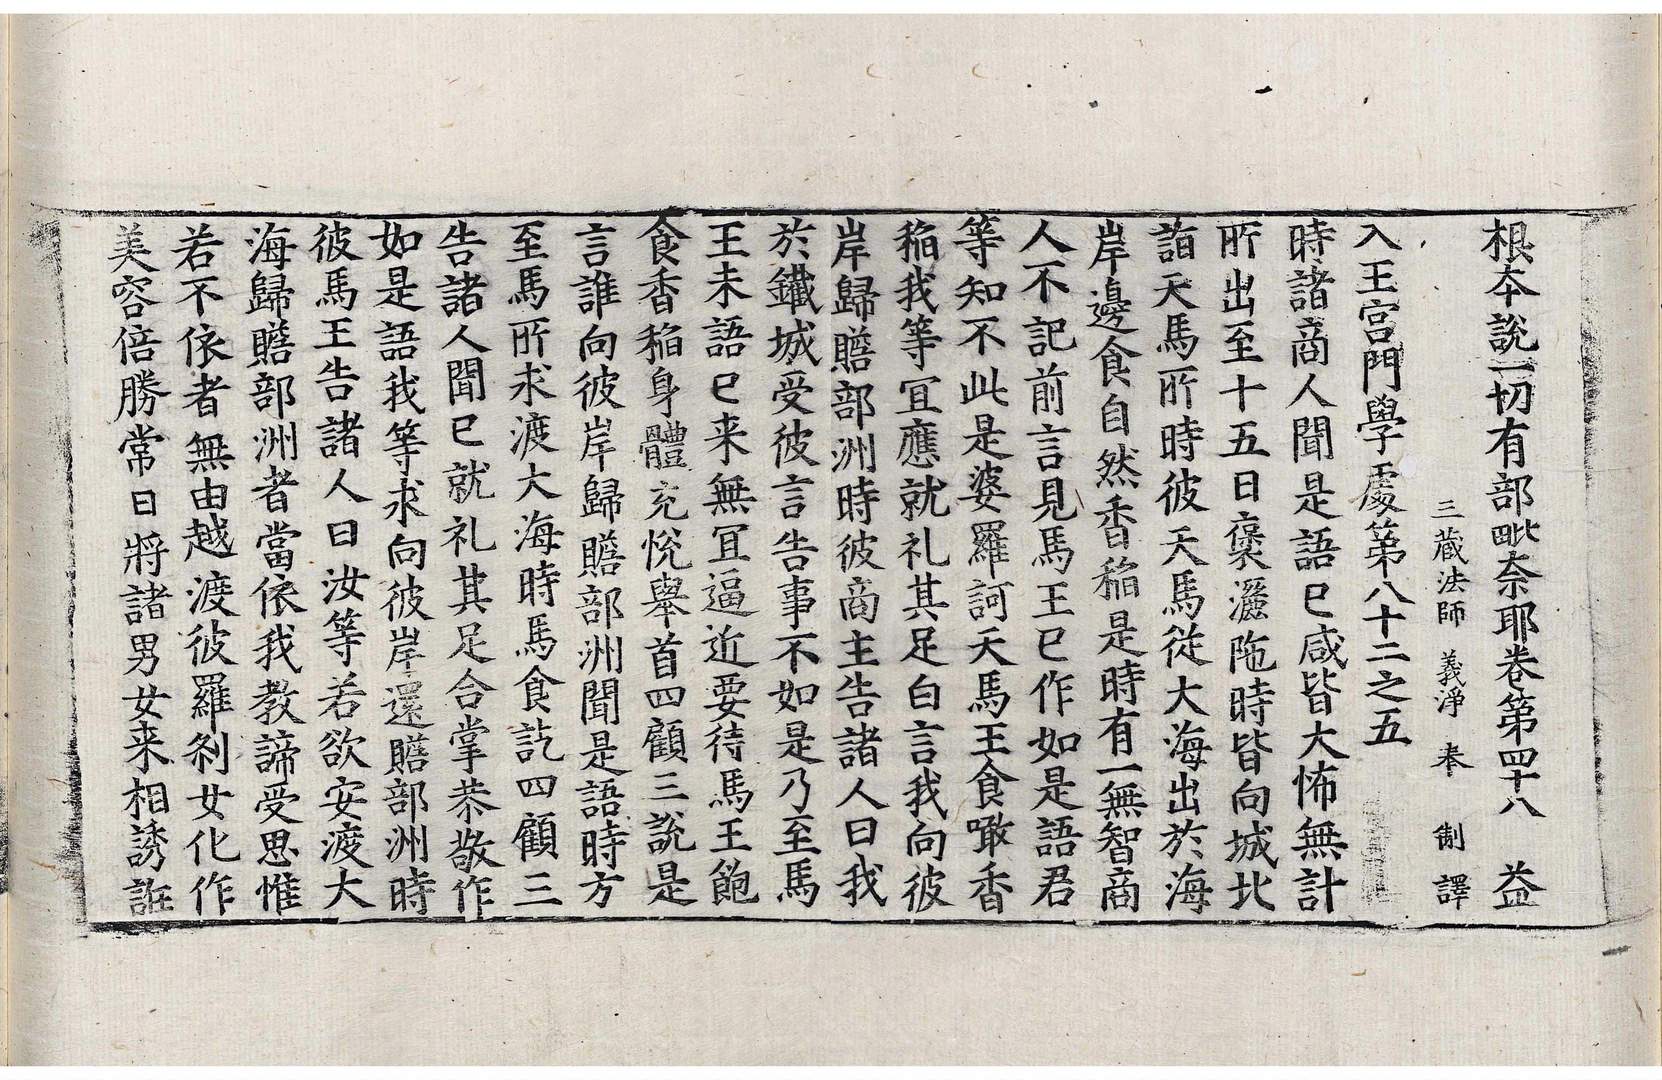 根本說一切有部毗奈耶卷第四十八 益
三藏法師 義淨 奉 制 譯
入王宮門學處第八十二之五
時諸商人聞是語已咸皆大怖無計
所出至十五日褒灑陁時皆向城北
詣天馬所時彼天馬從大海出於海
岸邊食自然香稻是時有一無智商
人不記前言見馬王已作如是語君
等知不此是婆羅訶天馬王食噉香
稻我等宜應就礼其足白言我向彼
岸歸贍部洲時彼商主告諸人曰我
於鐵城受彼言告事不如是乃至馬
王未語已来無宜逼近要待馬王飽
食香稻身體充悅舉首四顧三說是
言誰向彼岸歸贍部洲聞是語時方
至馬所求渡大海時馬食訖四顧三
告諸人聞已就礼其足合掌恭敬作
如是語我等求向彼岸還贍部洲時
彼馬王告諸人曰汝等若欲安渡大
海歸贍部洲者當依我教諦受思惟
若不依者無由越渡彼羅剎女化作
美容倍勝常日將諸男女来相誘誑